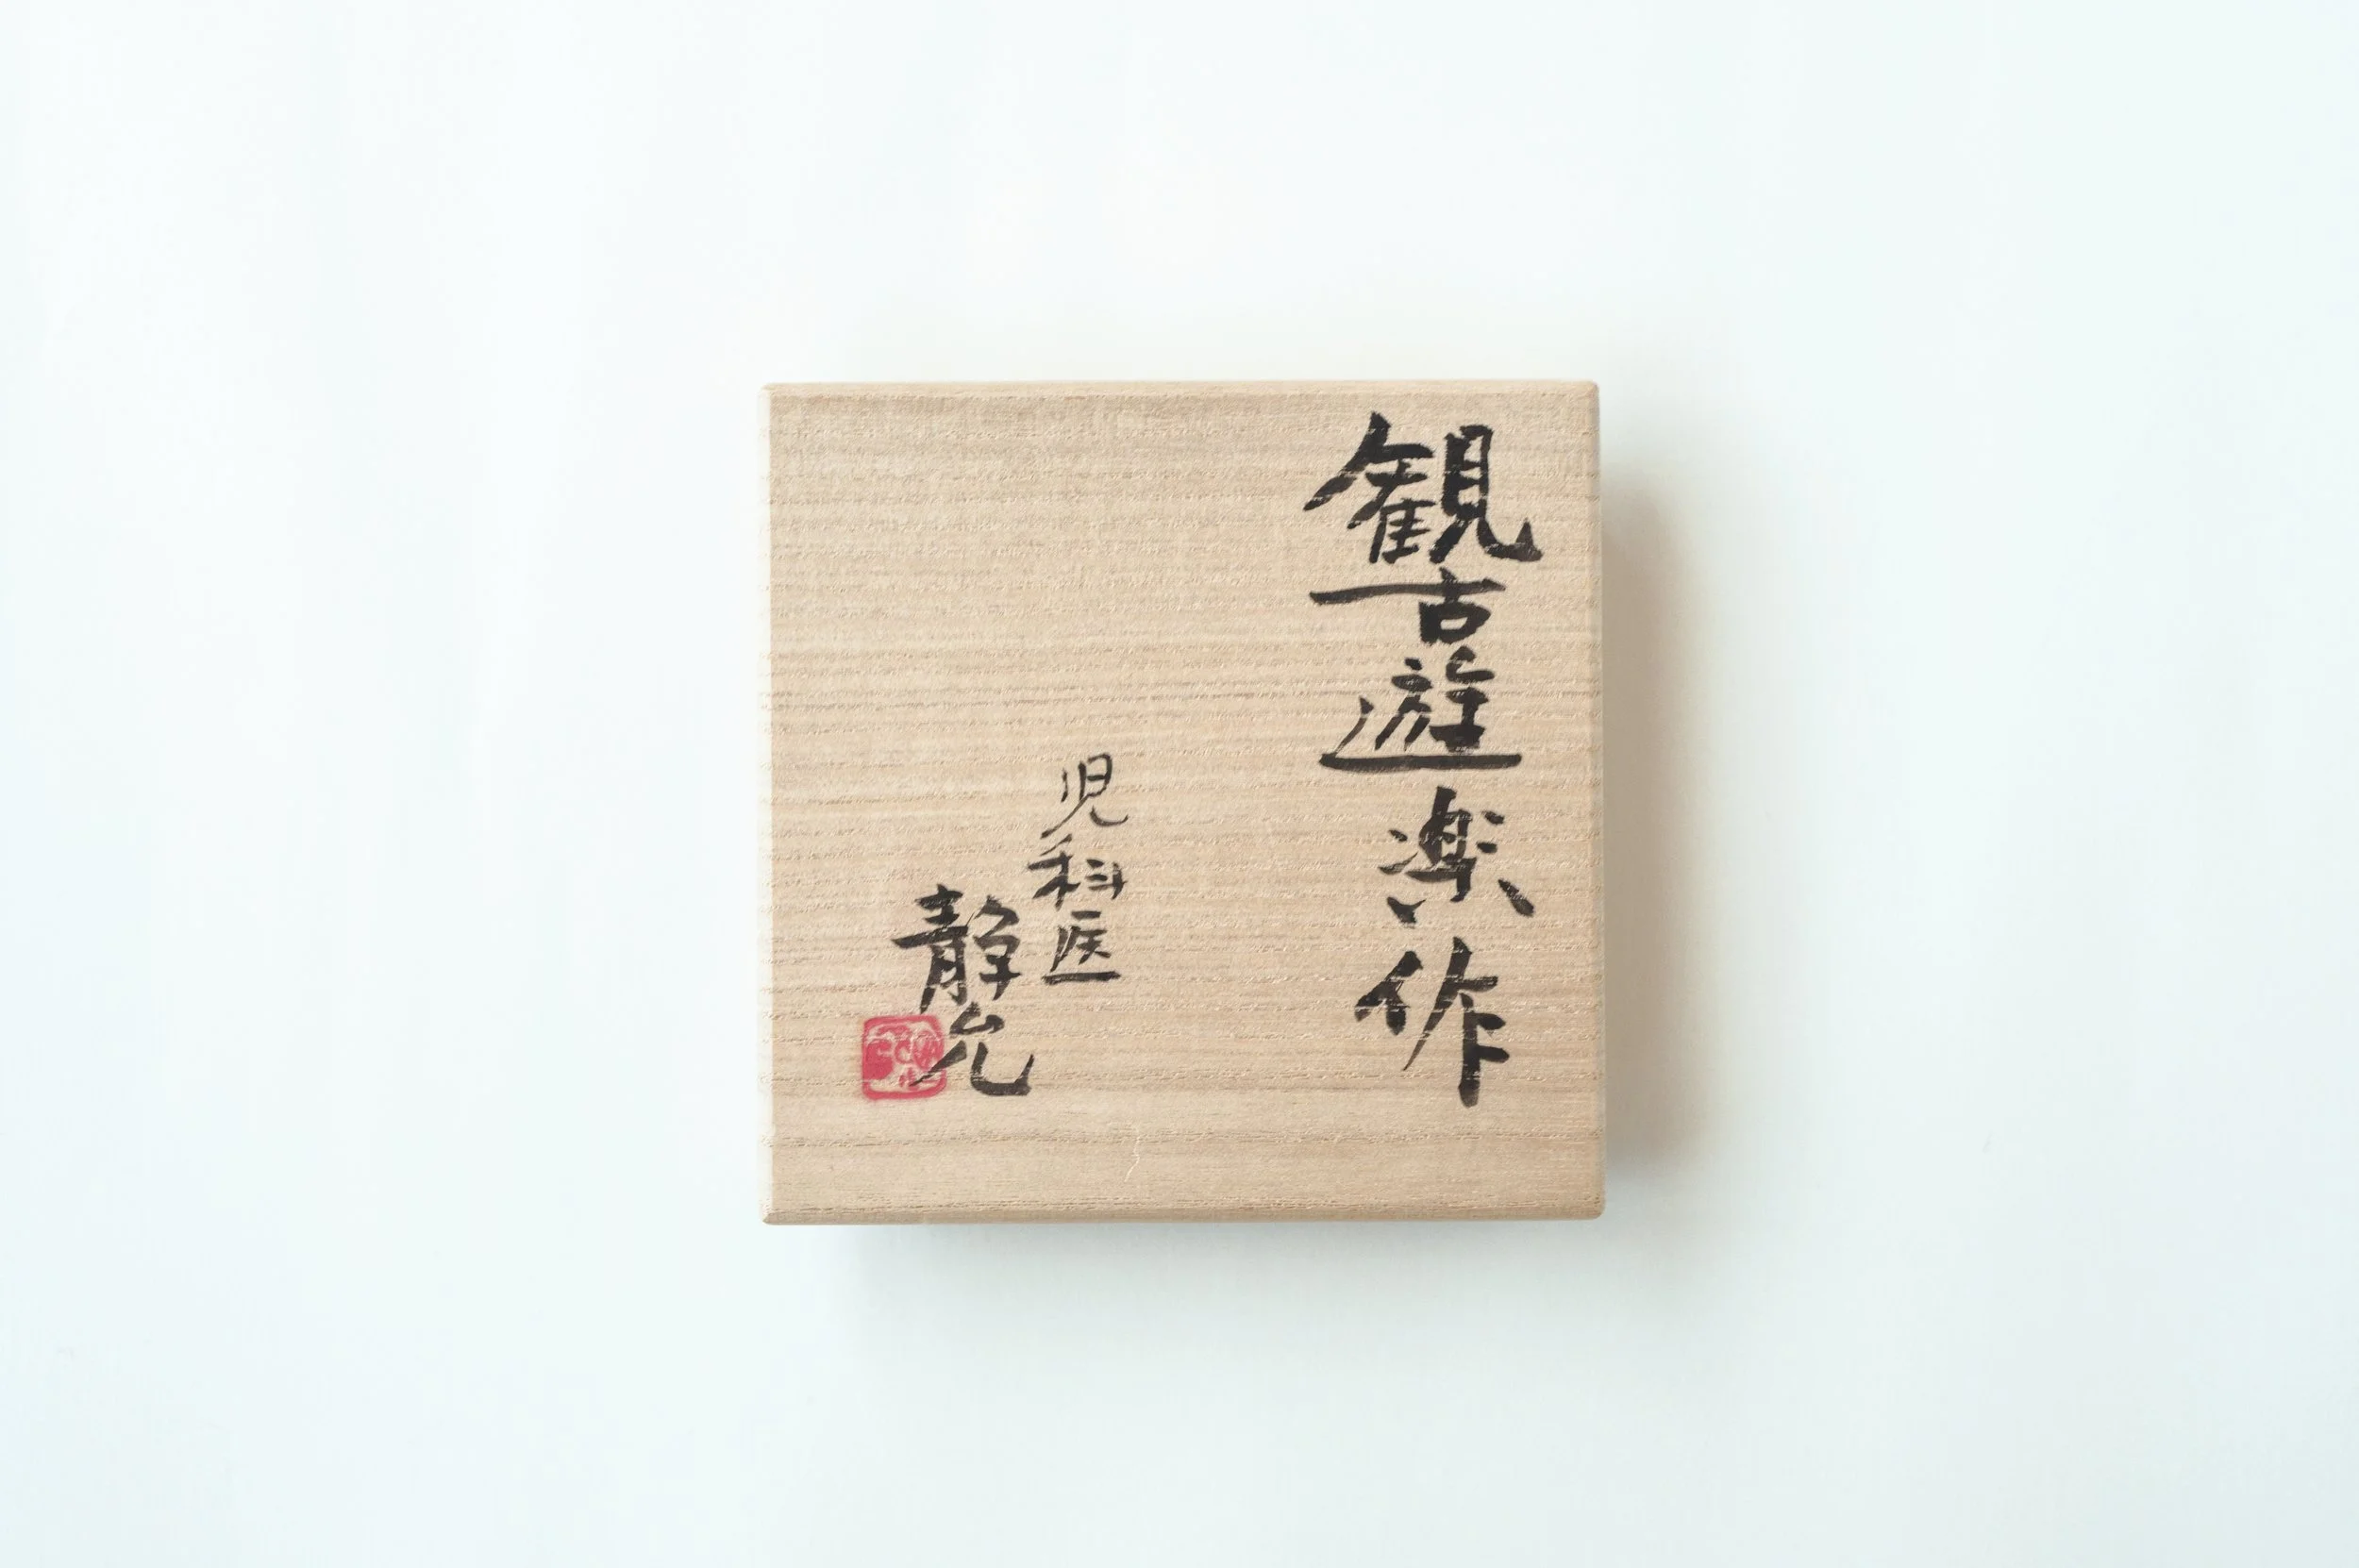 観古遊楽作
児科医
静允